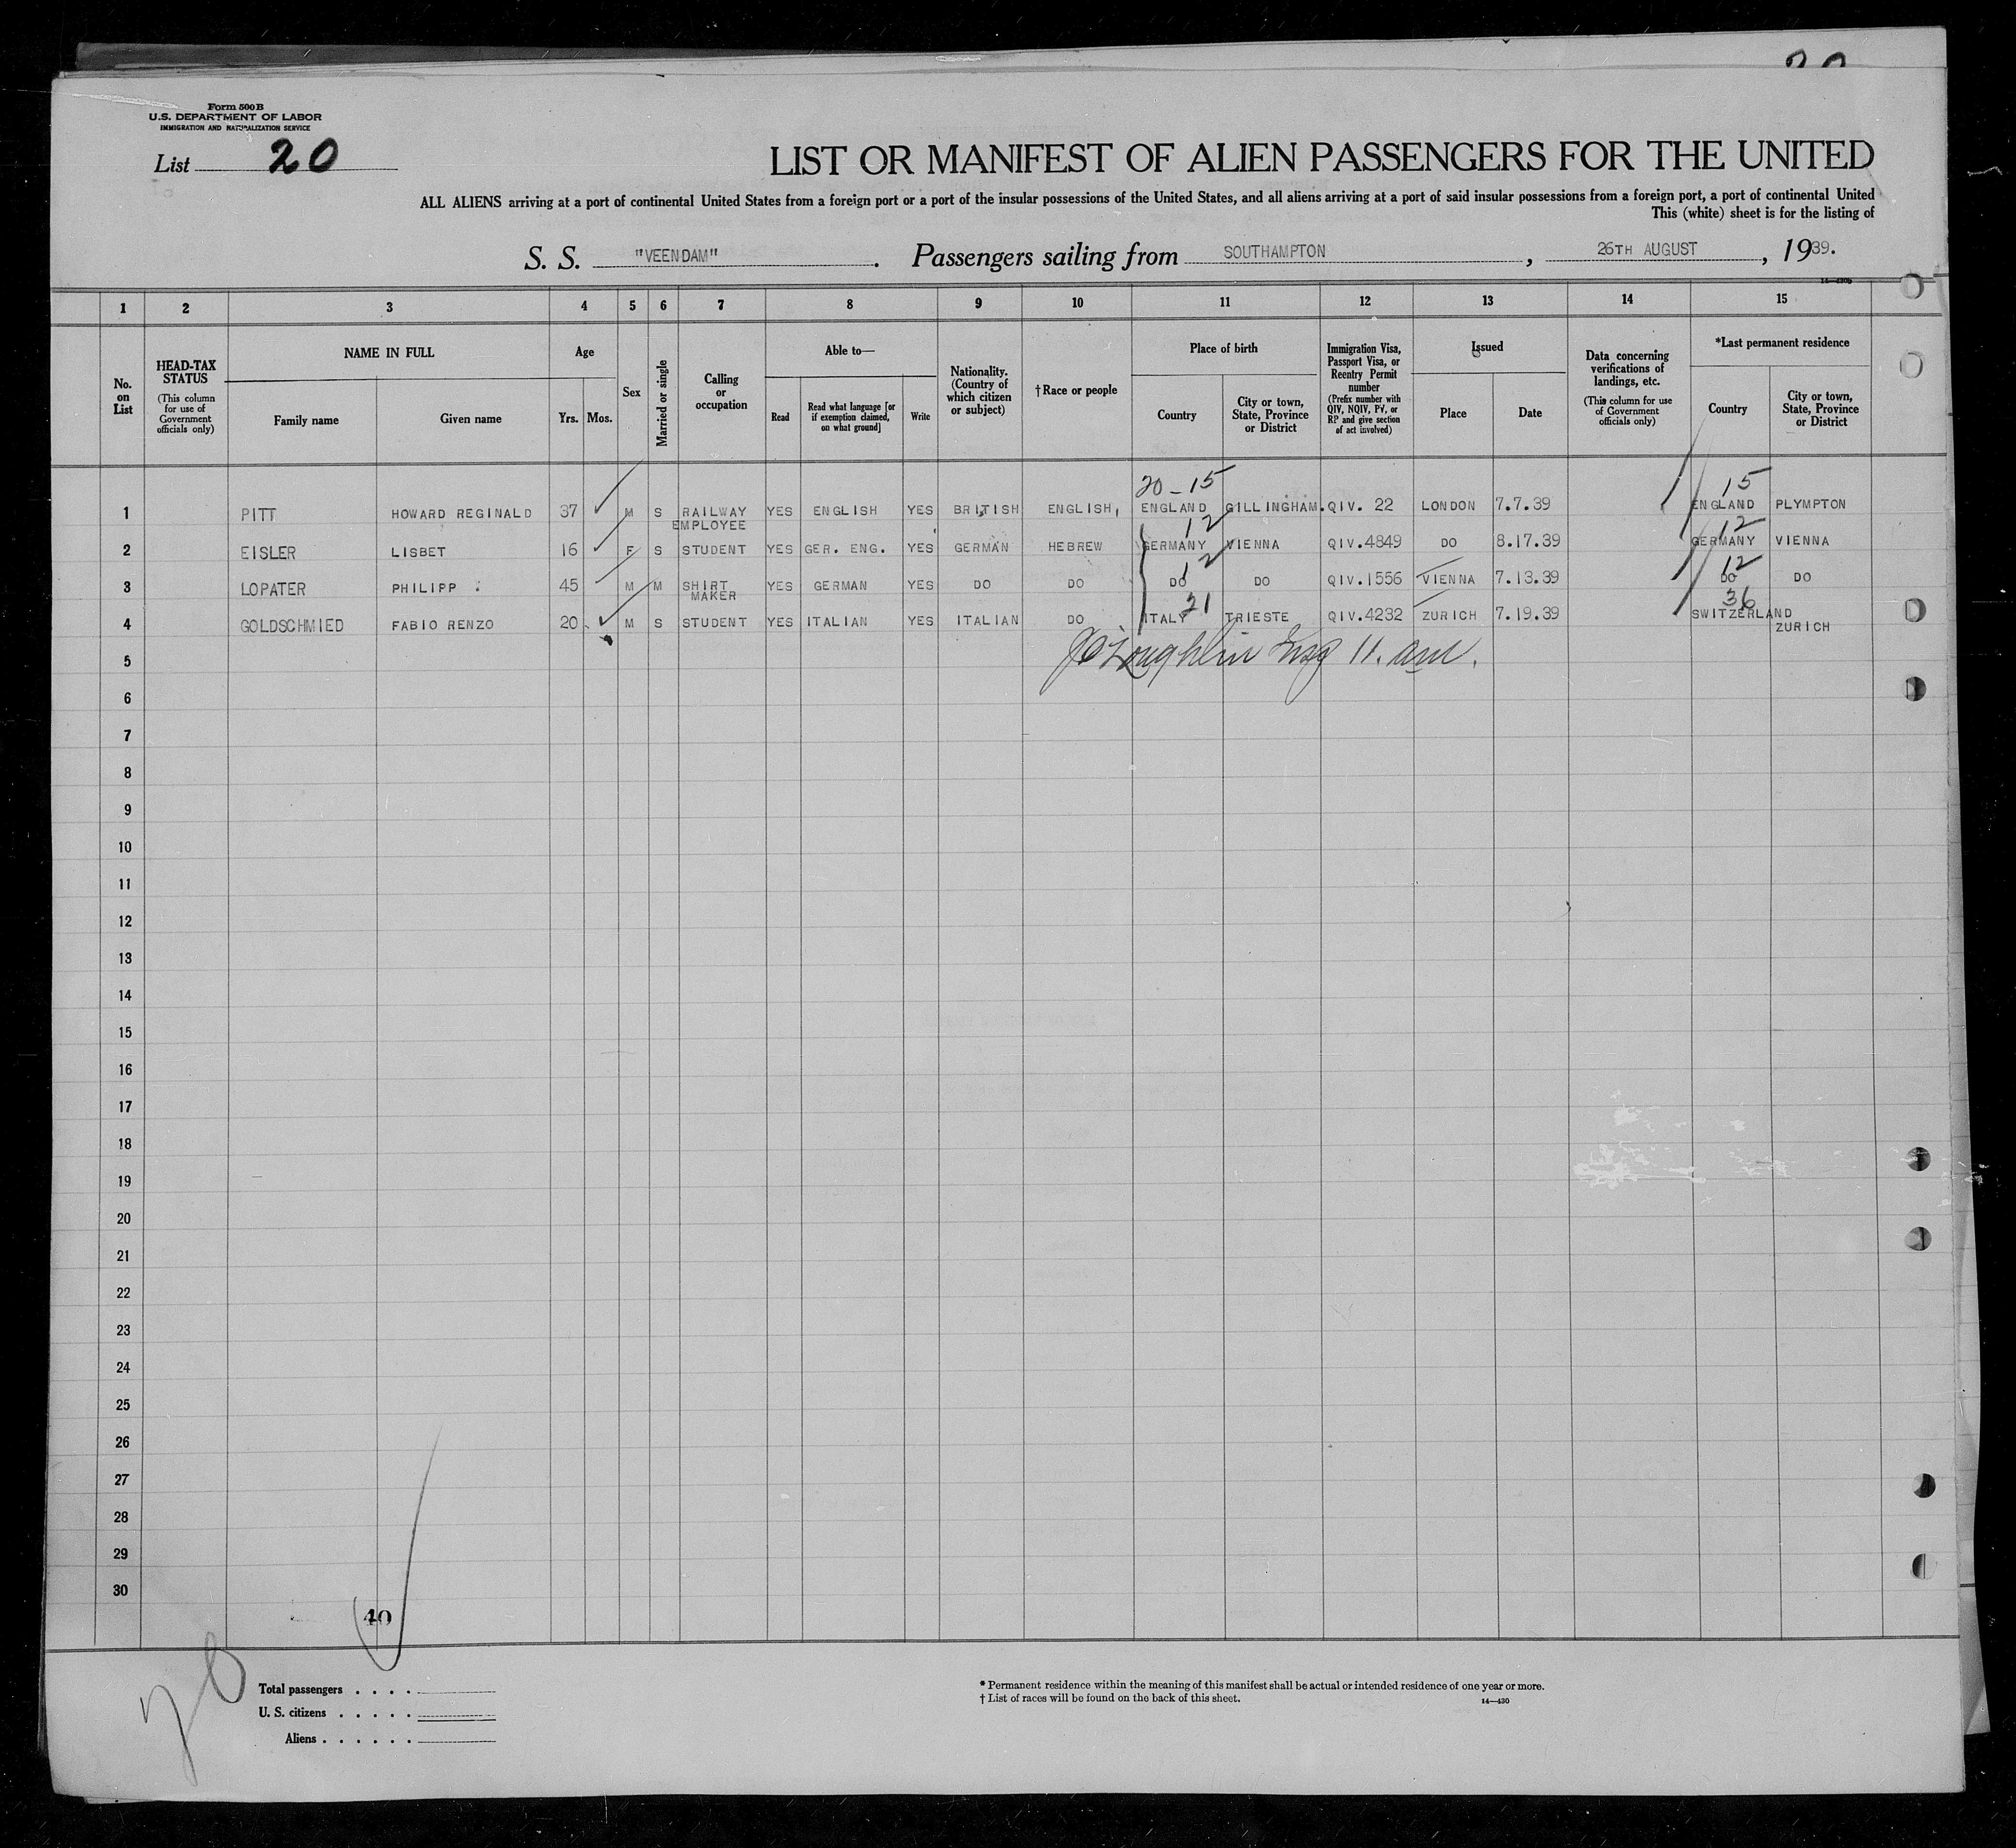 Form 500 B
U.S. DEPARTMENT OF LABOR
IMMIGRATION AND NATURALIZATION SERVICE
List 20
LIST OR MANIFEST OF ALIEN PASSENGERS FOR THE UNITED
ALL ALIENS arriving at a port of continental United States from a foreign port or a port of the insular possessions of the United States, and all aliens arriving at a port of said insular possessions from a foreign port, a port of continental United
This (white) sheet is for the listing of
S. S. "VEENDAM". Passengers sailing from SOUTHAMPTON, 26TH AUGUST, 1939.
1 2 3 4 5 6 7 8 9 10 11 12 13 14 15
No. on List
HEAD-TAX STATUS
(This column for use of Government officials only)
NAME IN FULL
Family name
Given name
Age
Yrs. Mos.
Sex
Married or single
Calling or occupation
Able to—
Read
Read what language [or if exemption claimed, on what ground]
Write
Nationality. (Country of which citizen or subject)
†Race or people
Place of birth
Country
City or town, State, Province or District
Immigration Visa, Passport Visa, or Reentry Permit number
(Prefix number with QIV, NQIV, PV, or RP and give section of act involved)
Issued
Place
Date
Data concerning verifications of landings, etc.
(This column for use of Government officials only)
*Last permanent residence
Country
City or town, State, Province or District
20-15 15
1 PITT HOWARD REGINALD 37 M S RAILWAY EMPLOYEE YES ENGLISH YES BRITISH ENGLISH, ENGLAND GILLINGHAM. QIV. 22 LONDON 7.7.39 ENGLAND PLYMPTON
12 12
2 EISLER LISBET 16 F S STUDENT YES GER. ENG. YES GERMAN HEBREW GERMANY VIENNA QIV.4849 DO 8.17.39 GERMANY VIENNA
12 12
3 LOPATER PHILIPP 45 M M SHIRT MAKER YES GERMAN YES DO DO DO DO QIV.1556 VIENNA 7.13.39 DO DO
21 36
4 GOLDSCHMIED FABIO RENZO 20 M S STUDENT YES ITALIAN YES ITALIAN DO ITALY TRIESTE QIV.4232 ZURICH 7.19.39 SWITZERLAND ZURICH
5
6
7
8
9
10
11
12
13
14
15
16
17
18
19
20
21
22
23
24
25
26
27
28
29
30
40
Total passengers . . . .
U. S. citizens . . . . .
Aliens . . . . . .
* Permanent residence within the meaning of this manifest shall be actual or intended residence of one year or more.
† List of races will be found on the back of this sheet.
14—430